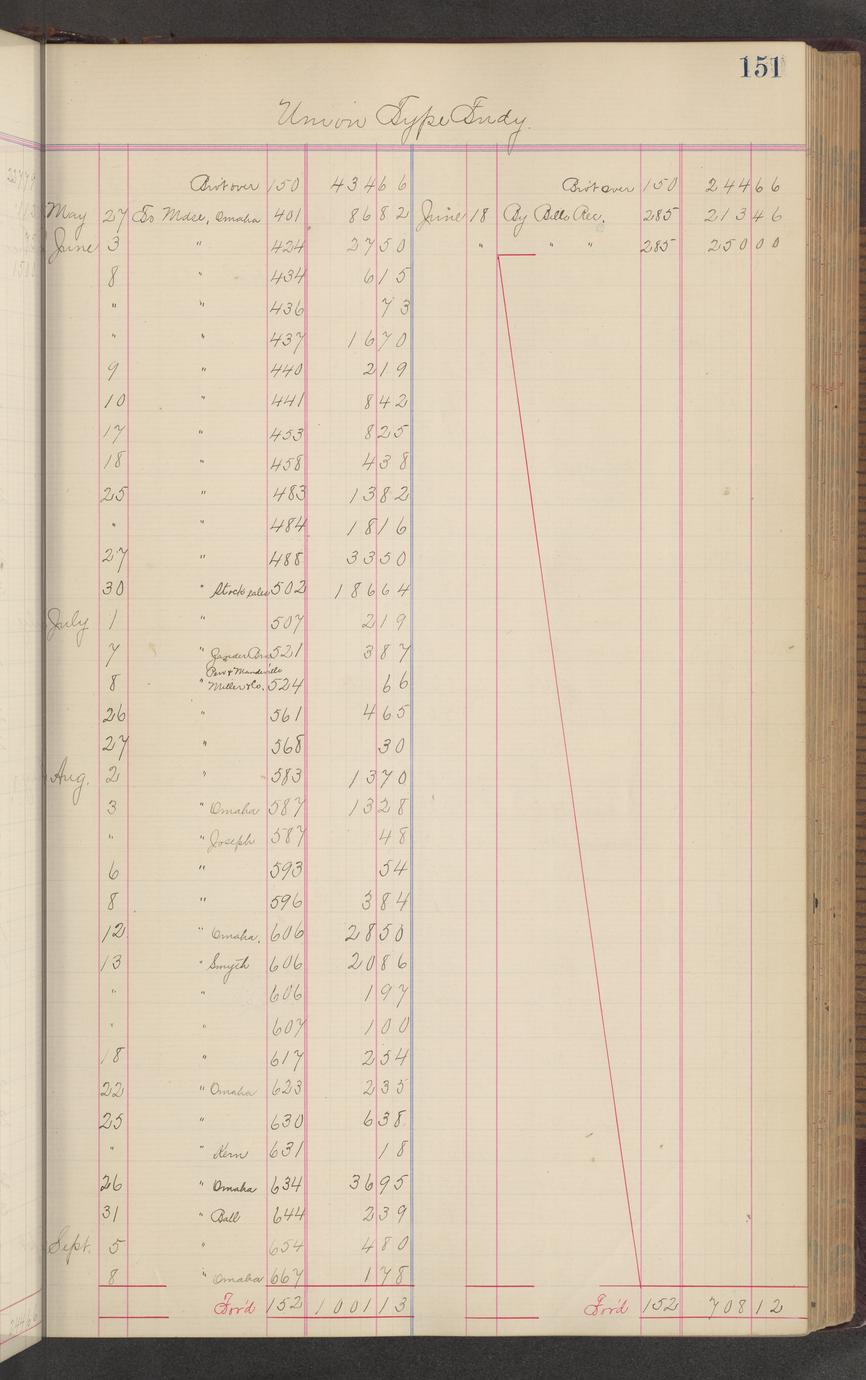 151
Union Type Fndy.
Bro't over 150 434 66 Bro't over 150 244 66
May 27 To Mdse, Omaha 401 86 82 June 18 By Bills Rec. 285 213 46
June 3 " 424 27 50 " " " 285 250 00
8 " 434 6 15
" " 436 73
" " 437 16 70
9 " 440 2 19
10 " 441 8 42
17 " 453 8 25
18 " 458 4 38
25 " 483 13 82
" " 484 18 16
27 " 488 33 50
30 " Stock sales 502 186 64
July 1 " 507 2 19
7 " 521 3 87
8 " Miller & Co. 524 66
26 " 561 4 65
27 " 568 30
Aug. 2 " 583 13 70
3 " Omaha 587 13 28
" " Joseph 587 48
6 " 593 54
8 " 596 3 84
12 " Omaha. 606 28 50
13 " Smyth 606 20 86
" " 606 1 97
" " 607 1 00
18 " 617 2 54
22 " Omaha 623 2 35
25 " 630 6 38
" " Kern 631 18
26 " Omaha 634 36 95
31 " Ball 644 2 39
Sept. 5 " 654 4 80
8 " Omaha 667 1 78
For'd 152 1001 13 For'd 152 708 12